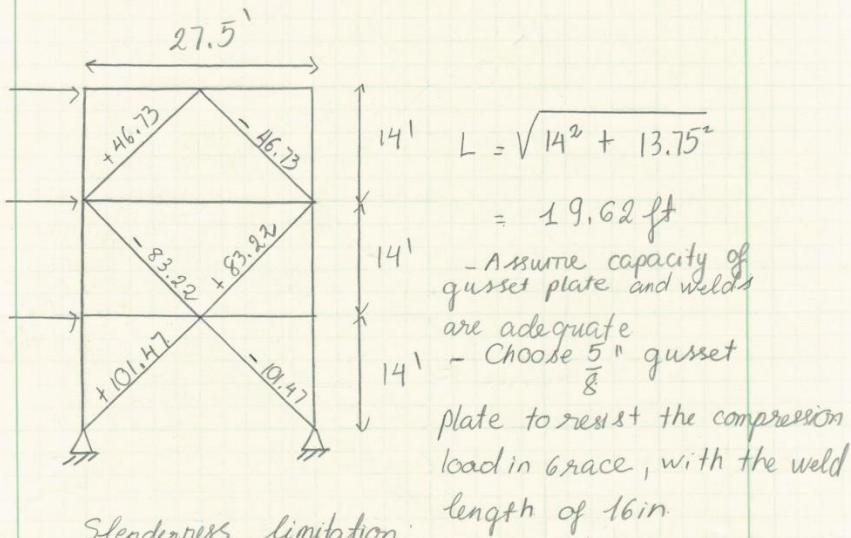 27.5'
+46.73
- 46.73
14'
- 83.22
+ 83.22
14'
+101.47
-101.47
14'
L = √14² + 13.75²
= 19.62 ft
- Assume capacity of
gusset plate and welds
are adequate
- Choose 5/8" gusset
plate to resist the compression
load in brace, with the weld
length of 16in.
Slenderness limitation: